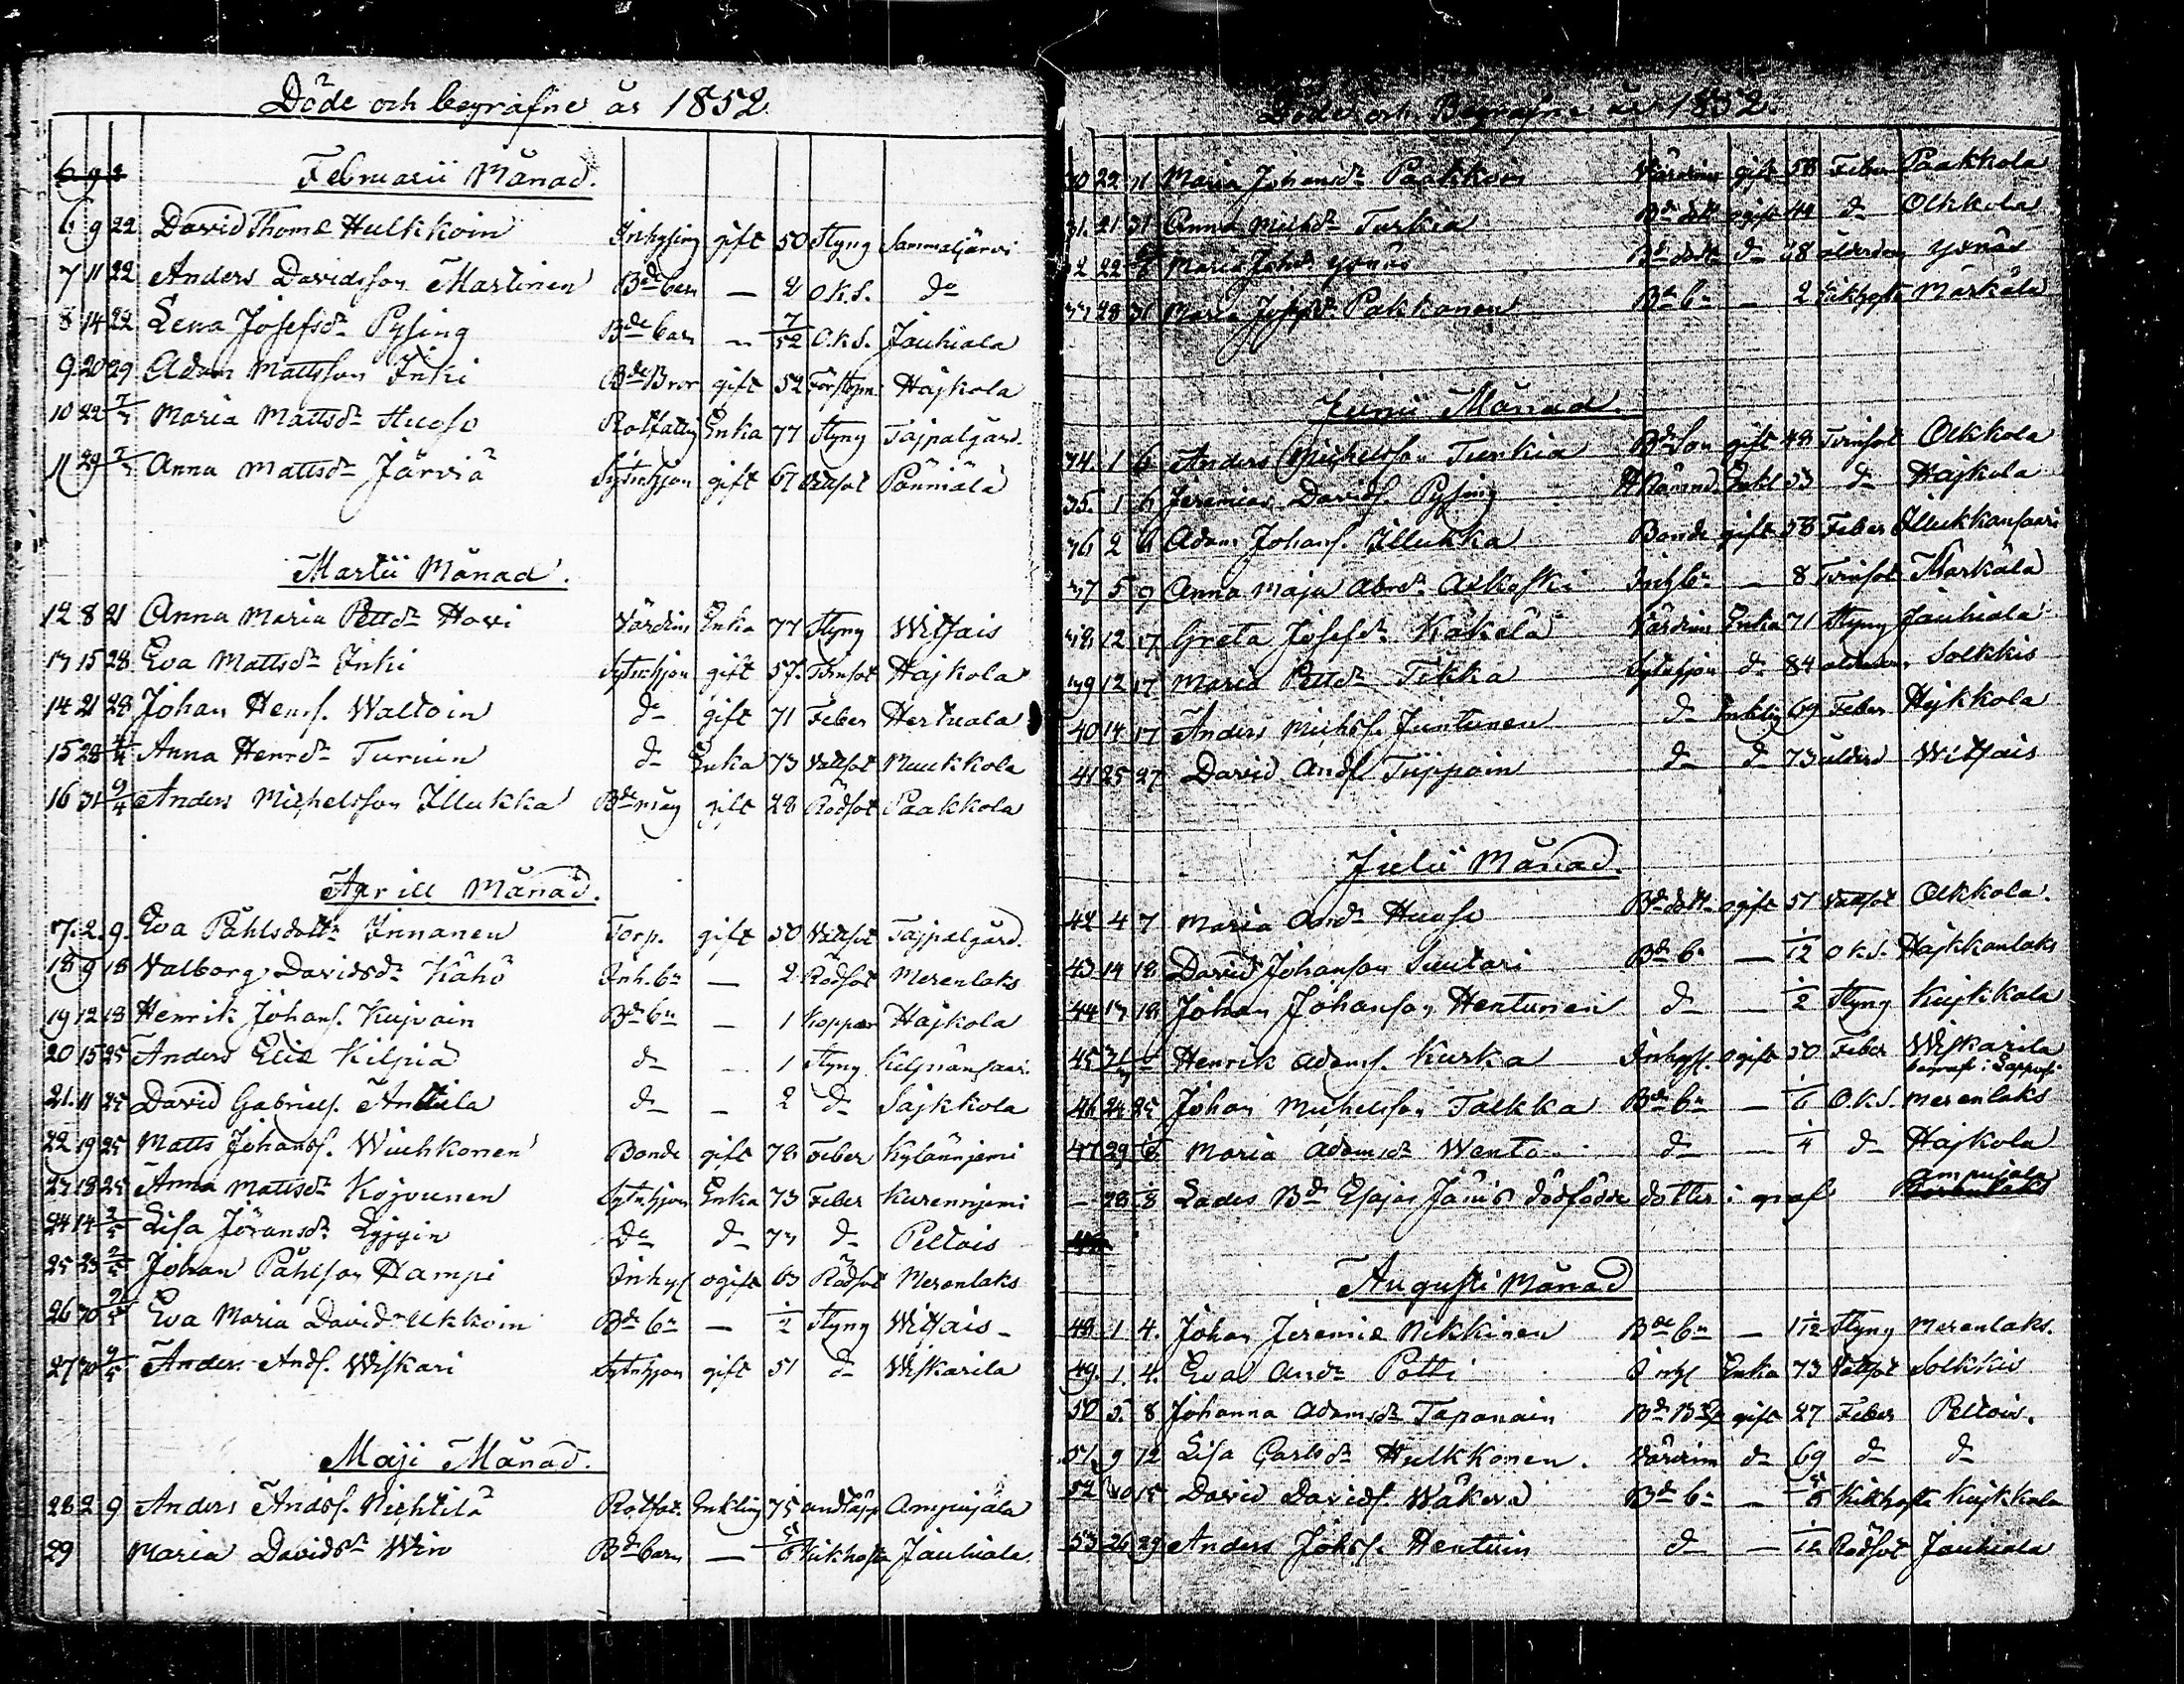 Döde och begrafne år 1852
Februarii Månad.
6 9 22 David Thomæ Hulkkoin Inhysing gift 50 Styng Sammaljärvi
7 11 22 Anders Davidsson Martinen Bde barn — 2 O.k.S. do
8 14 22 Lena Josefsdr Pysing Bde barn — 7/52 O.k.S. Jauhiala
9 20 29 Adam Mattsson Inki Bde Bror gift 52 Hajkola
10 22 Maria Mattsdr Huoso Rotfattig Enka 77 Styng Tajpalgård.
11 29 Anna Mattsdr Järviä Sytnhjon gift 67 Vattsot Pänniälä
Martii Månad.
12 8 21 Anna Maria Pettdr Howi Värdin Enka 77 Styng Witsais
13 15 28 Eva Mattsdr Inki Sytnhjon gift 57. Tvinsot Hajkola
14 21 28 Johan Henrs. Waltoin do gift 71 Feber Hertuala
15 28 Anna Henrdr Turuin do Enka 73 Vattsot Muukkola
16 31 9/4 Anders Michelsson Illukka Bde måg gift 28 Rödsot Paakkola
Aprill Månad.
17. 2. 9. Eva Påhlsdottr Innanen Torp. gift 50 Vattsot Tajpalgård.
18 9 18 Valborg Davidsdr Kähö Inh. bn — 2 Rödsot Merenlaks
19 12 18 Henrik Johans. Kujvain Bde bn — 1 Koppor Hajkola
20 15 25 Anders Eliæ Kilpiä do — 1 Styng Kilpiänsaari
21. 11 25 David Gabriels. Anttila do — 2 do Sajkkola
22 19 25 Matts Johanss. Wiuhkonen Bonde gift 78 Feber Kylännjemi
23 18 25 Anna Mattsdr Kojvunen Sytnhjon Enka 73 Feber Kurennjemi
24 14 2/5 Lisa Jöransdr do do 73 do Peltois
25 23 2/5 Johan Påhlsson Hampi Inhys ogift 63 Rödsot Merenlaks
26 30 9/5 Eva Maria Davidsdr Ukkoin Bde bn — 1/2 Styng Witsais
27 30 9/5 Anders Ands. Wiskari Sytnhjon gift 51 do Wiskarila
Maji Månad.
28 2 9 Anders Andsf. Richtilä Rotfat. Enkling 75 andtäpp Ampujala
29 Maria Davidsdr Win Bde barn — 5/6 Kikhosta Jauhiala.
Döde och Begrafne år 1852.
30 22 31 Maria Johansdr Paakkoin Värdinn gift 58 Feber Paakkola
31. 21 31 Anna Michdr Turkia Bde dottr ogift 44 do Olkkola
32 22 Maria Johdr Yxnäs Bde dottr do 68 ålderdom Yxnäs
33 28 31 Maria Josepdr Pakkanen Bde bn — 2 Kikhosta Märkälä
Junii Månad.
34. 1 6 Anders Michelsson Turkia Bde Son gift 48 Tvinsot Olkkola
35. 1 6 Jeremias Davids. Pysing Enkl 53 do Hajkola
36 2 6 Adam Johans. Illukka Bonde gift 58 Feber Illukkansaari
37 5 9 Anna Maja Inhs bn — 8 Tvinsot Märkälä
38 12 17 Greta Josefdr Käkelä Värdinn Enka 71 Styng Jauhiala
39 12 17 Maria Pettdr Tikka Sytnhjon do 84 ålderdom Solkkis
40 14 17 Anders Michss. Juntunen do Enkling 69 Feber Hajkkola
41 25 27 David Ands Tiippoin do do 73 ålderd Witsais
Julii Månad.
42 4 7 Maria Andr Huuso Bde dottr ogift 57 Vattsot Olkkola.
43 14 18 David Johanson Suutari Bde bn — 1/12 O.k.S. Hajkkanlaks
44 17 18 Johan Johanson Hentunen do — 1/2 Styng Kujkkala
45 Henrik Adams. Kurka Inhys. ogift 50 Feber Wiskarila
begraf. i Lappvesi
46 24 25 Johan Michelsson Talkka Bde bn — 1/6 O.k.S. Merenlaks
47 29 Maria Adamsdr Wento do — 1/4 do Hajkola
— 28 Lades Bd Esajas dödfödde dotter i graf Ampujala
Augusti Månad
48 1 4. Johan Jeremiæ Nikkinen Bde bn — 1 1/12 Styng Merenlaks.
49. 1. 4. Eva Andr Potti Inhs Enka 73 Vattsot Solkkis
50 5. 8 Johanna Adamsdr Tapanain gift 27 Feber Peltois.
51. 9 12 Lisa Carlsdr Hulkkonen. Värdinn do 69 do do
52 10 15 David Davids. Wäkevä Bde bn — Kikhosta Kujkkala
53 26 29 Anders Johss. Hentuin do — 1/12 Rödsot Jauhiala